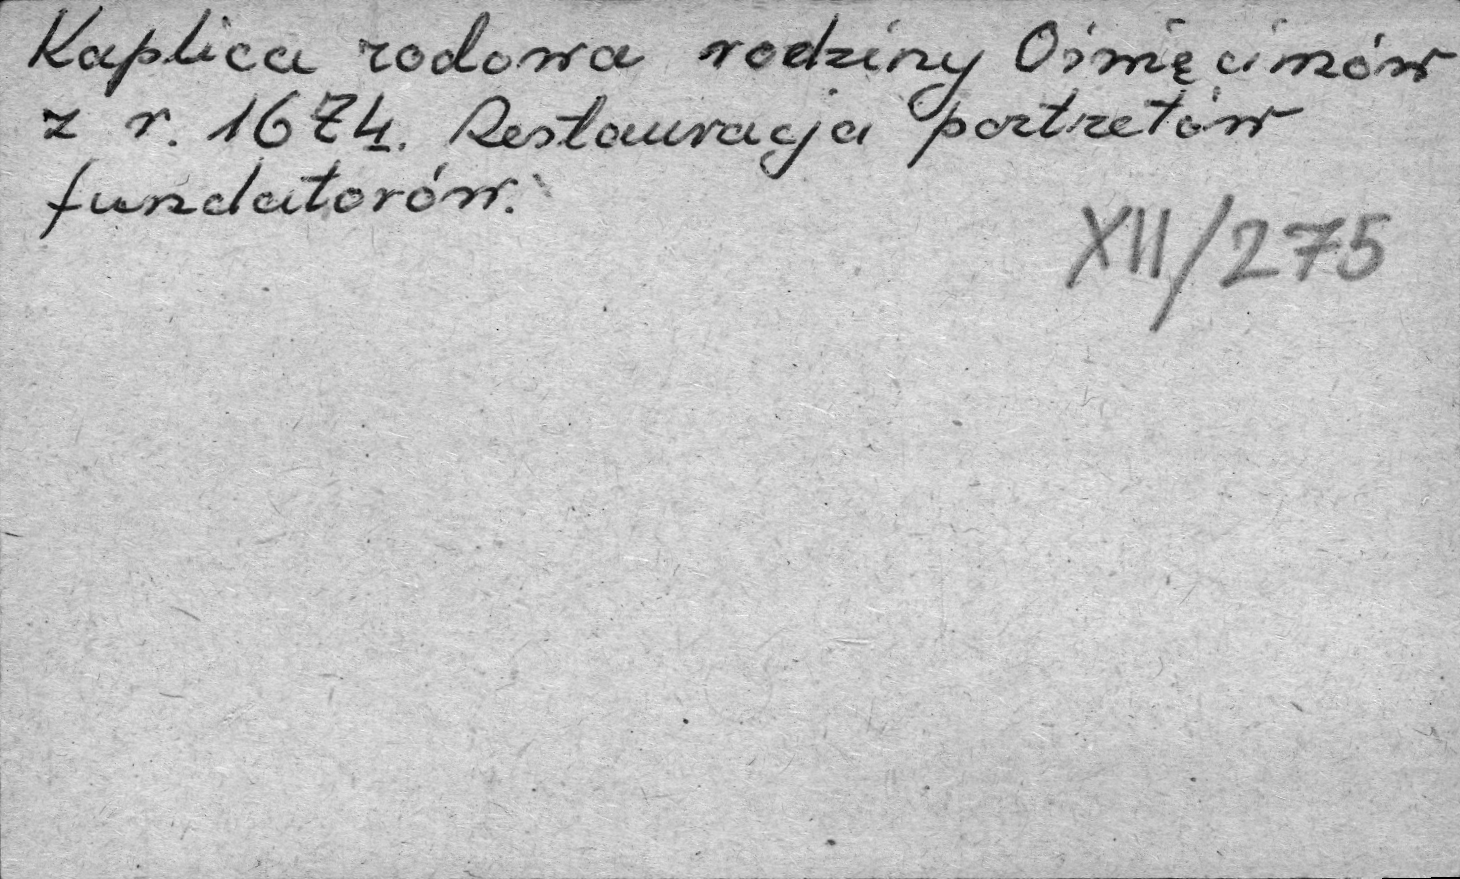 Kaplica rodowa rodziny Oświęcimów
z r. 1674. Restauracja portretów
fundatorów.
XII/275